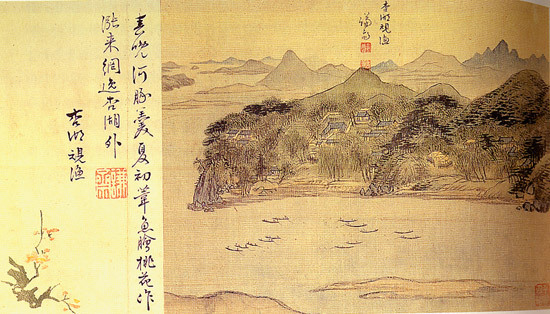 杏湖觀漁
春晩河豚羹夏初葦魚膾桃花作
漲來網逸杏湖外
杏湖觀漁